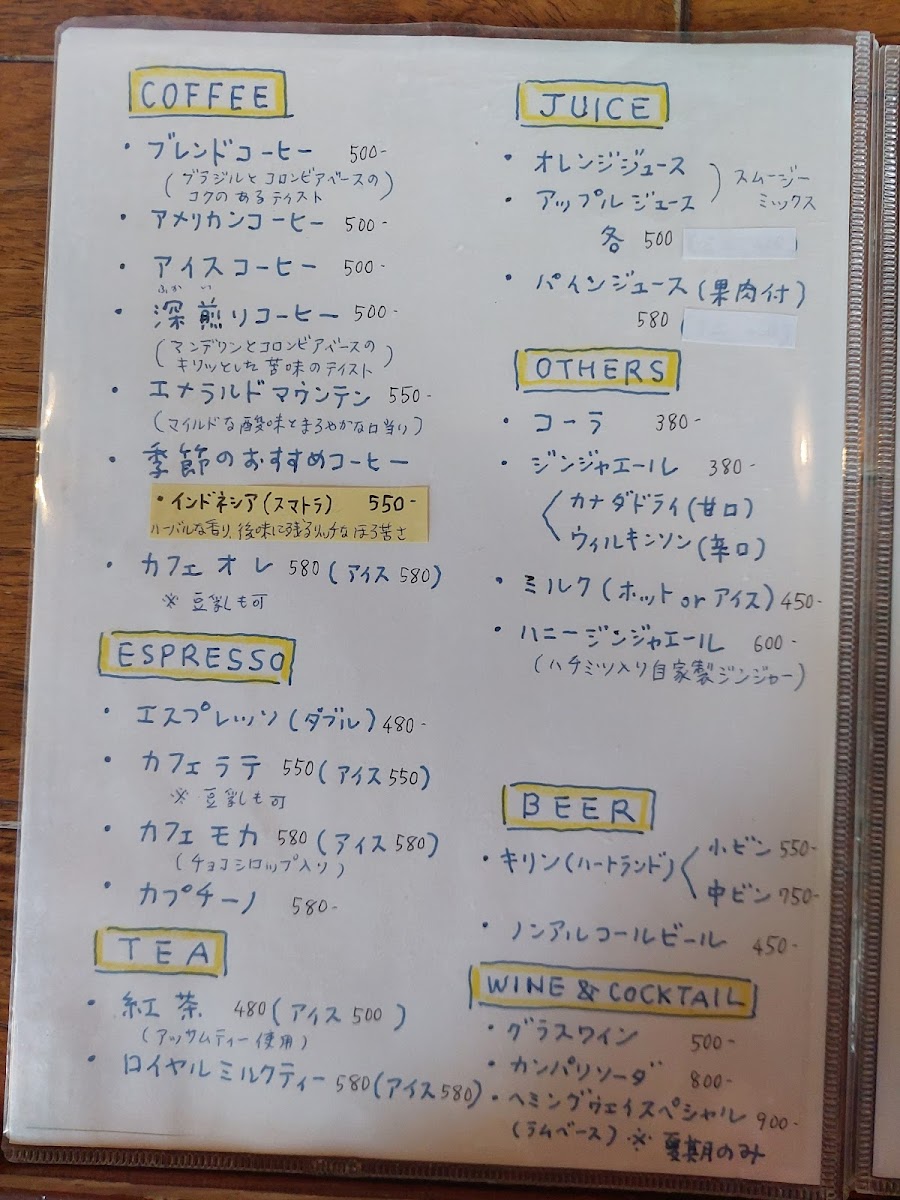 COFFEE
・ブレンドコーヒー 500-
(ブラジルとコロンビアベースの
コクのあるテイスト)
・アメリカンコーヒー 500-
・アイスコーヒー 500-
ふか い
・深煎りコーヒー 500-
(マンデリンとコロンビアベースの
キリッとした苦味のテイスト)
・エメラルドマウンテン 550-
(マイルドな酸味とまろやかな口当り)
・季節のおすすめコーヒー
・インドネシア(スマトラ) 550-
ハーバルな香り、後味に残るリッチなほろ苦さ
・カフェオレ 580(アイス580)
※豆乳も可
ESPRESSO
・エスプレッソ(ダブル)480-
・カフェラテ 550(アイス550)
※豆乳も可
・カフェモカ 580(アイス580)
(チョコシロップ入り)
・カプチーノ 580-
TEA
・紅茶 480(アイス500)
(アッサムティー使用)
・ロイヤルミルクティー580(アイス580)
JUICE
・オレンジジュース
・アップルジュース
スムージー
ミックス
各 500
・パインジュース(果肉付)
580
OTHERS
・コーラ 380-
・ジンジャエール 380-
カナダドライ(甘口)
ウィルキンソン(辛口)
・ミルク(ホットorアイス)450-
・ハニージンジャエール 600-
(ハチミツ入り自家製ジンジャー)
BEER
・キリン(ハートランド)
小ビン 550-
中ビン 750-
・ノンアルコールビール 450-
WINE & COCKTAIL
・グラスワイン 500-
・カンパリソーダ 800-
・ヘミングウェイスペシャル 900-
(ラムベース)※夏期のみ